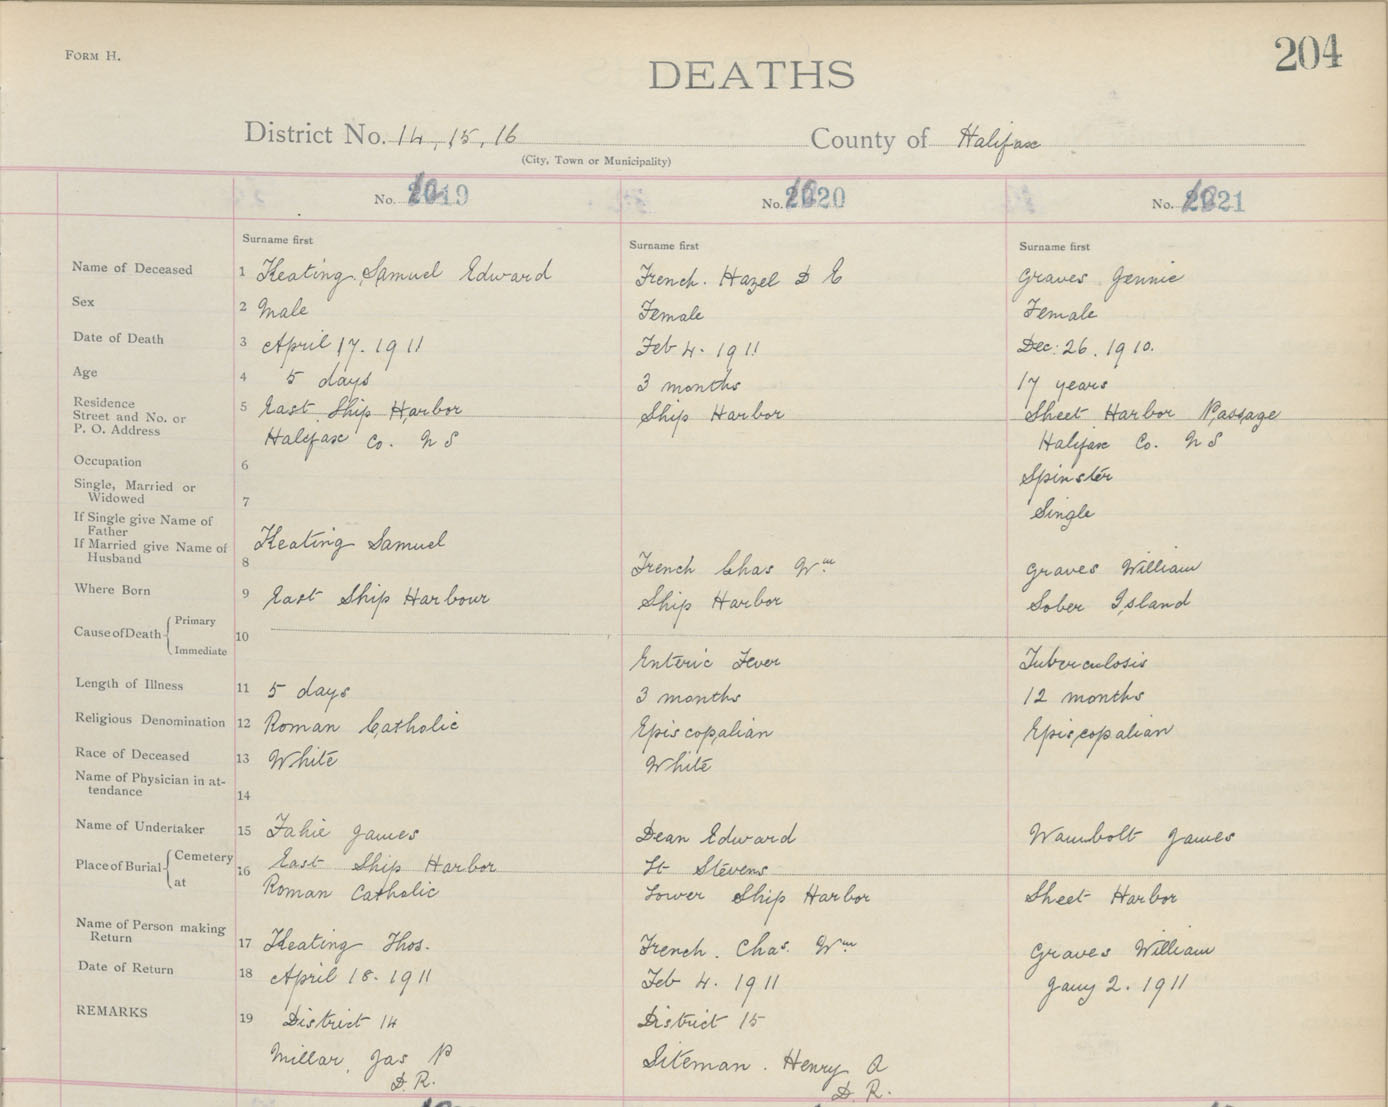 FORM H.
204
DEATHS
District No. 14, 15, 16 County of Halifax
(City, Town or Municipality)
No. 2019 No. 2020 No. 2021
Surname first Surname first Surname first
Name of Deceased 1 Keating, Samuel Edward French. Hazel D E Graves Jennie
Sex 2 Male Female Female
Date of Death 3 April 17. 1911 Feb 4. 1911 Dec. 26. 1910.
Age 4 5 days 3 months 17 years
Residence
Street and No. or 5 East Ship Harbor Ship Harbor Sheet Harbor Passage
P. O. Address Halifax Co. N S Halifax Co. N S
Occupation 6 Spinster
Single, Married or
Widowed 7 Single
If Single give Name of
Father
If Married give Name of Keating Samuel
Husband 8 French Chas Wm Graves William
Where Born 9 East Ship Harbour Ship Harbor Sober Island
Cause of Death Primary 10
Immediate Enteric Fever Tuberculosis
Length of Illness 11 5 days 3 months 12 months
Religious Denomination 12 Roman Catholic Episcopalian Episcopalian
Race of Deceased 13 White White
Name of Physician in at-
tendance 14
Name of Undertaker 15 Fahie James Dean Edward Wambolt James
Place of Burial Cemetery 16 East Ship Harbor St Stevens
at Roman Catholic Lower Ship Harbor Sheet Harbor
Name of Person making
Return 17 Keating Thos. French. Chas. Wm Graves William
Date of Return 18 April 18. 1911 Feb 4. 1911 Jany 2. 1911
REMARKS 19 District 14 District 15
Millar, Jas P Siteman. Henry A
D. R. D. R.